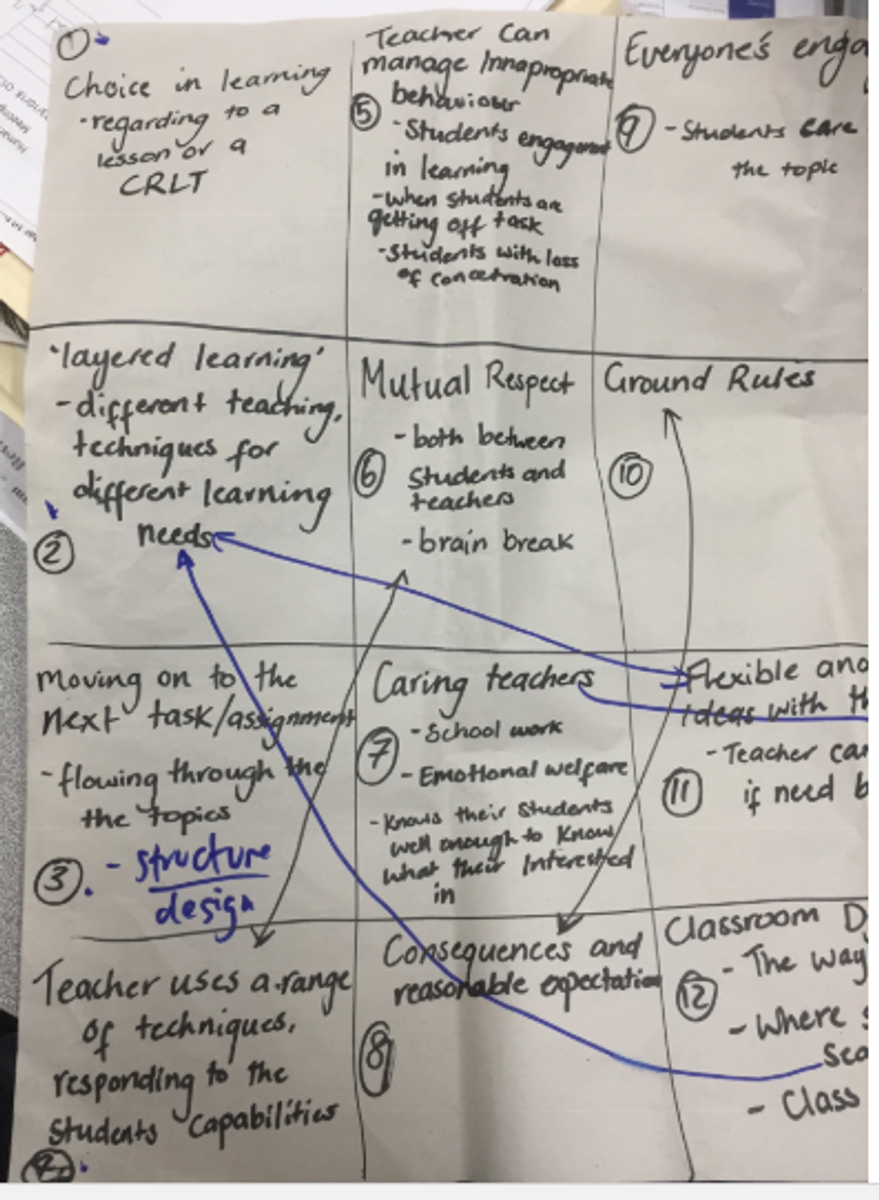 ①
Choice in learning
-regarding to a
lesson or a
CRLT
'layered learning'
-different teaching,
techniques for
different learning
needs
②
moving on to the
next task/assignment
-flowing through the
the topics
③. - structure
design
Teacher uses a range
of techniques,
responding to the
students capabilities
④
Teacher Can
manage Innapropriate
behaviour
⑤ -Students engagement
in learning
-when students are
getting off task
-Students with loss
of concetration
Mutual Respect
- both between
⑥ Students and
teachers
-brain break
Caring teachers
⑦ -School work
- Emotional welfare
-Knows their students
well enough to know
what their interested
in
Consequences and
reasonable expectation
⑧
Everyone's enga
⑨ - Students care
the topic
Ground Rules
⑩
Flexible and
ideas with th
-Teacher can
⑪ if need b
Classroom D
⑫ - The way
- Where s
Sea
- Class